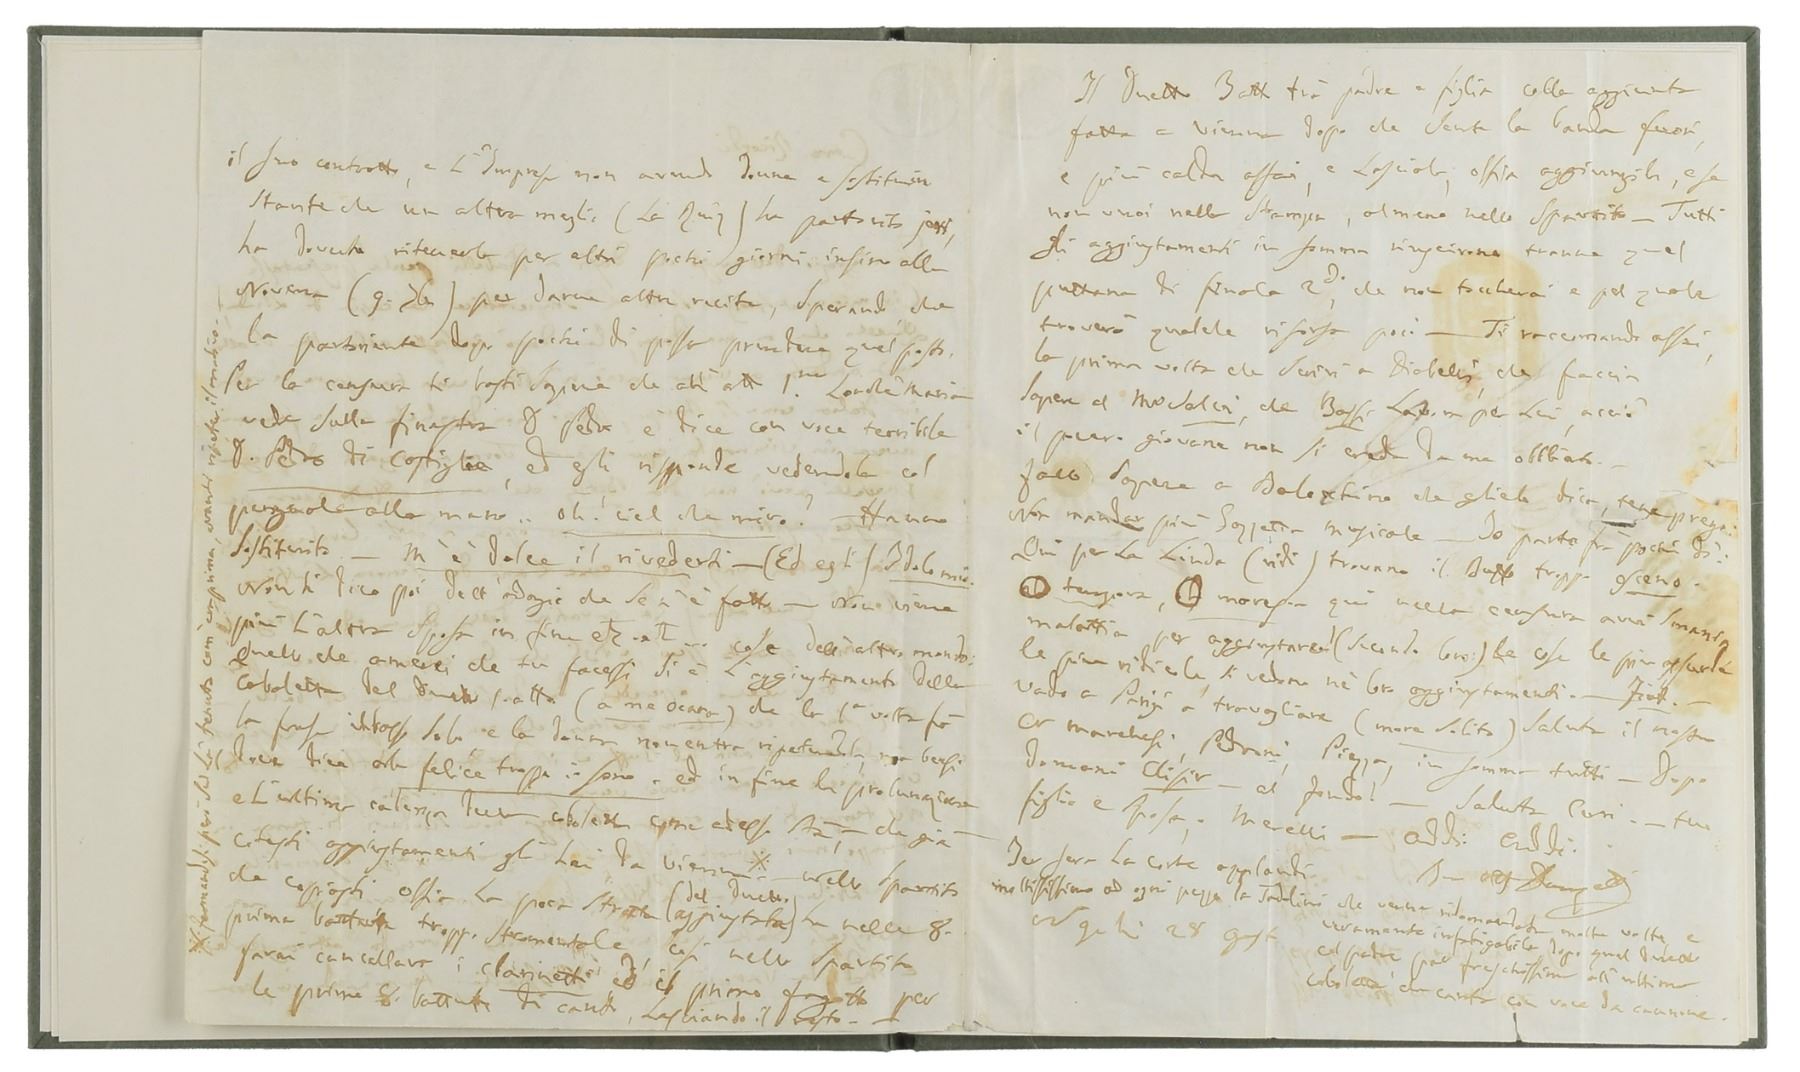 il suo contratto, e L'Impresa non avendo donne a sostituire
stante che un altra moglie (La ) ha partorito jeri,
ha dovuto ritenerla per altri pochi giorni insino alla
Novena (9. 7bre) per darne altre recite, sperando che
la partoriente dopo pochi dì possa prendere quel posto.
Per la censura ti basti sapere che all'att 1.mo Maria
vede sulla finestra D Pedro e dice con voce terribile
D. Pedro di Castiglia, ed egli risponde vedendola col
pugnale alla mano .. oh! ciel che miro! Hanno
sostituito — M'è dolce il rivederti — (Ed egli) Idolo mio.
Non ti dico poi dell'adagio che se n'è fatto — Non viene
più L'altra sposa in fine ... cose dell'altro mondo:
Quello che amerei che tu facessi si è L'aggiustamento della
Cabaletta del duetto 1.atto (a me ) che la 1a volta fà
la frase solo e la donna non entra ripetendola, ma bensì
deve dire ah felice troppo io sono. ed in fine la prolungazione
e L'ultima cadenza della cabaletta come adesso stà, — che già
cotesti aggiustamenti gli hai da Vienna ※ — nello spartito
che copiasti ossia La poca stretta (del duetto, aggiustata) ha nelle 8.
prime battute troppo stromentale, così nello spartito
farai cancellare i clarinetti ed il primo fagotto per
le prime 8. battute di canto, Lasciando il resto. —
※ fermandosi però sul La fermata com'era prima, avanti ripeter il motivo —
Il Duetto Batt trà padre e figlia colla aggiunta
fatta a Vienna dopo che sente la banda fuori,
è più calda assai, e Lasciala, ossia aggiungila, e se
non vuoi nella stampa, almeno nello spartito — Tutti
gli aggiustamenti in somma riusciron tranne quel
puttana di finale 2do, che non toccherai e pel quale
troverò qualche risorsa poi — Ti raccomando assai,
la prima volta che scrivi a Diabelli, che faccia
sapere al , che Bassi per Lui, acciò
il povero giovane non si creda da me obbliato. —
Fallo sapere a che glielo dica, te ne prego.
Non mandar più Gazzetta musicale — Io parto frà pochi dì:
Qui per La Linda (vidi) trovano il Buffo troppo osceno.
O tempora, O mores qui nella censura avvi smania
malattia per aggiustare (secondo loro) le cose le più assurde
le più ridicole, si vedono nè loro aggiustamenti. — Fiat. —
vado a Parigi a travagliare (more solito) Saluta il nostro
Marchesi, Pedroni, Piazza, in somma tutti — Dopo
domani Elisir — al Fondo! — Saluta Curi. — tua
figlia e sposa, Merelli — Addi. Addi.
Jer sera La corte applaudì
moltissimo ad ogni pezzo la Tadolini che venne ridomandata molte volte, e
veramente infatigabile dopo quel duetto
col padre par freschissima all'ultima
cabaletta che canta con voce da cannone.
28 agost